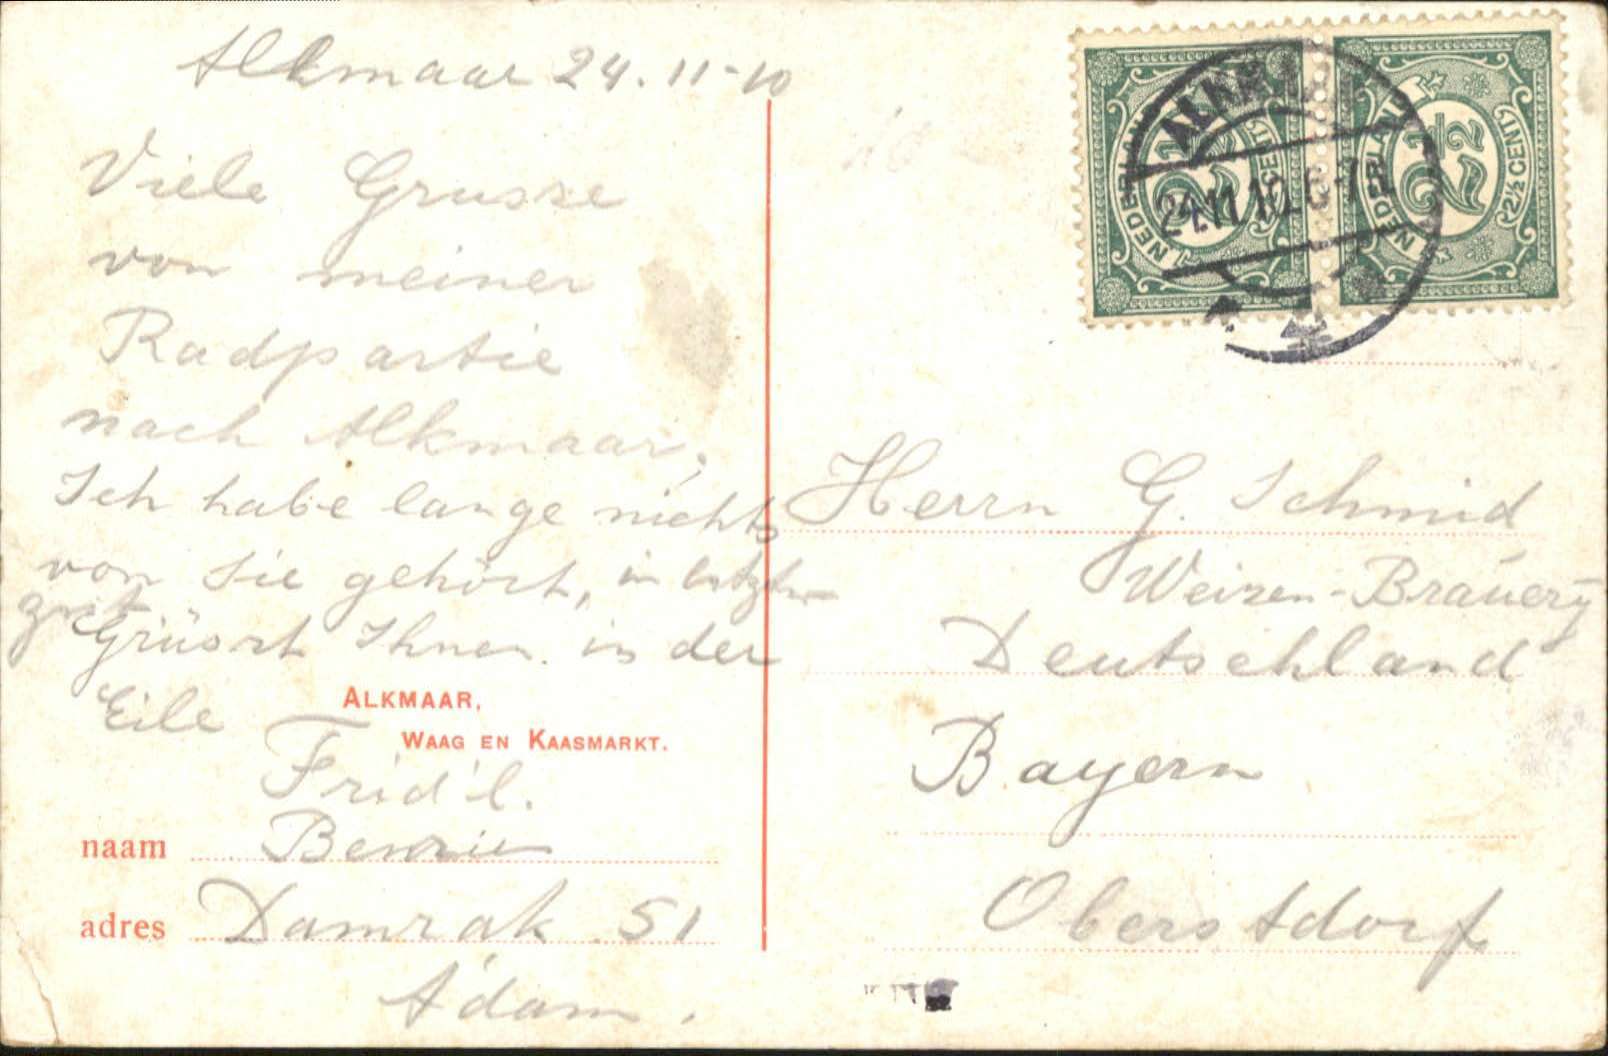 Alkmaar 24.11-10
Viele Grusse
von meiner
Radpartie
nach Alkmaar,
Ich habe lange nichts
von Sie gehört, in letzter
zeit
Grüsst Ihnen in der
Eile
ALKMAAR,
WAAG EN KAASMARKT.
Frid'l.
naam
adres Damrak 51
A'dam.
NEDERLAND
2½ CENT
NEDERLAND
2½ CENT
ALKMAAR
24.11.10.6-7
Herrn G. Schmid
Weizen-Brauery
Deutschland
Bayern
Oberstdorf